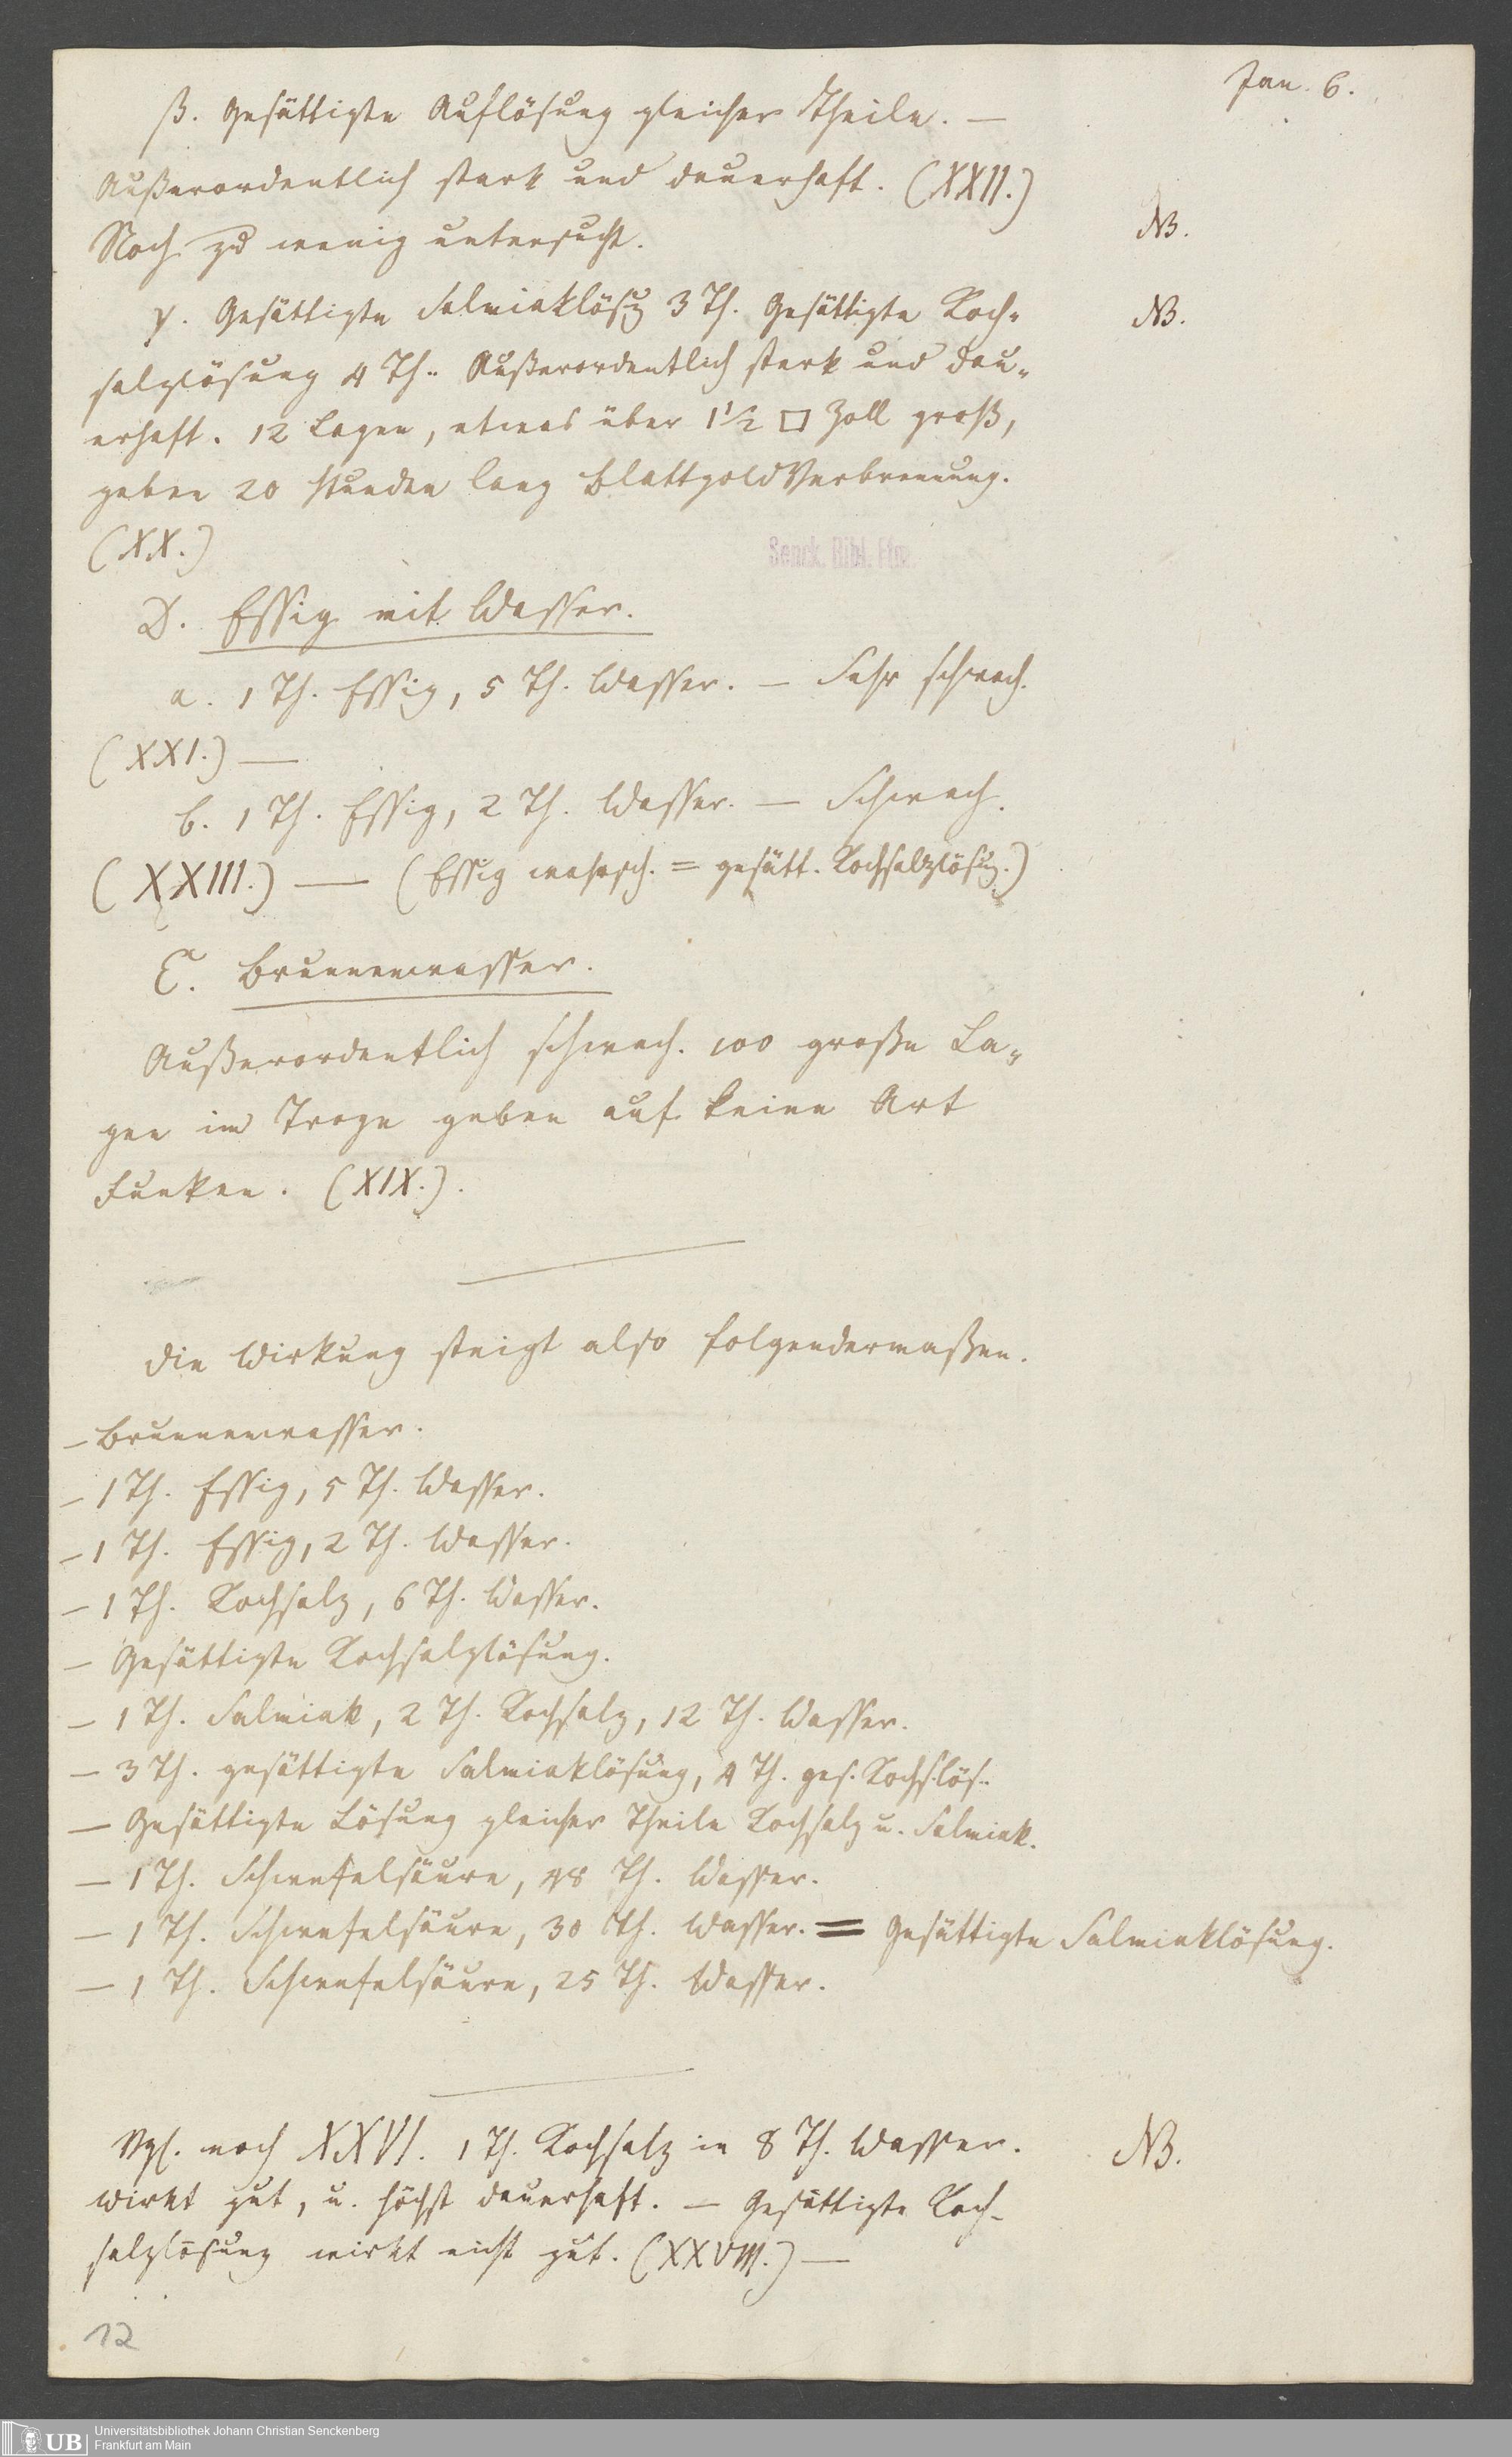 Jan. 6.
β. Gesättigte Auflösung gleicher Theile. —
Außerordentlich stark und dauerhaft. (XXII.)
Noch zu wenig untersucht.
NB.
γ. Gesättigte Salmiaklösg 3 Th. Gesättigte Koch-
NB.
salzlösung 4 Th. Außerordentlich stark und dau-
erhaft. 12 Lagen, etwas über 1 1/2 □ Zoll groß,
geben 20 Stunden lang BlattgoldVerbrennung.
(XX.)
Senck. Bibl. Ffm.
D. Essig mit Wasser.
a. 1 Th. Essig, 5 Th. Wasser. — Sehr schwach.
(XXI.) —
b. 1 Th. Essig, 2 Th. Wasser. — Schwach.
(XXIII.) — (Essig wahrsch. = gesätt. Kochsalzlösg.)
E. Brunnenwasser.
Außerordentlich schwach. 100 große La-
gen im Troge geben auf keine Art
Funken. (XIX.).
Die Wirkung steigt also folgendermaßen.
— Brunnenwasser.
— 1 Th. Essig, 5 Th. Wasser.
— 1 Th. Essig, 2 Th. Wasser.
— 1 Th. Kochsalz, 6 Th. Wasser.
— Gesättigte Kochsalzlösung.
— 1 Th. Salmiak, 2 Th. Kochsalz, 12 Th. Wasser.
— 3 Th. gesättigte Salmiaklösung, 4 Th. ges. Kochs.lös.
— Gesättigte Lösung gleicher Theile Kochsalz u. Salmiak.
— 1 Th. Schwefelsäure, 48 Th. Wasser.
— 1 Th. Schwefelsäure, 30 Th. Wasser. = Gesättigte Salmiaklösung.
— 1 Th. Schwefelsäure, 25 Th. Wasser.
Vgl. noch XXVI. 1 Th. Kochsalz in 8 Th. Wasser.
NB.
wirkt gut, u. höchst dauerhaft. — Gesättigte Koch-
salzlösung wirkt nicht gut. (XXVIII.) —
12
UB
Universitätsbibliothek Johann Christian Senckenberg
Frankfurt am Main